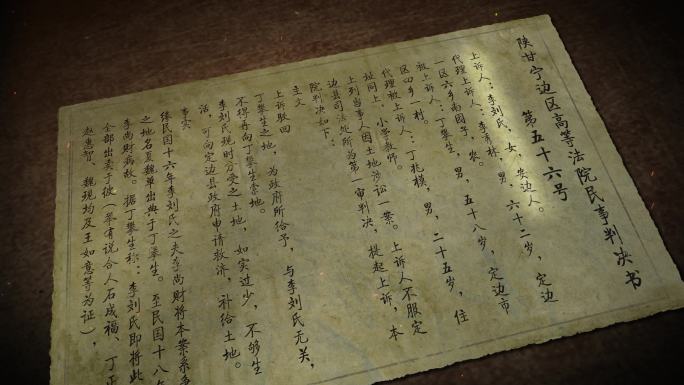 陕甘宁边区高等法院民事判决书
第五十六号
上诉人：李刘氏，女，安边人。
代理上诉人：李清林，男，六十二岁，定边
一区六乡南园子，农。
被上诉人：丁攀生，男，五十八岁，定边市
区四乡一村。
代理被上诉人：丁兆模，男，二十五岁，住
址同上，小学教师。
上列当事人因土地涉讼一案。上诉人不服定
边县司法处所为第一审判决，提起上诉，本
院判决如下：
主文
上诉驳回
丁攀生之地，为政府所给予，与李刘氏无关，
不得再向丁攀生索地。
李刘氏现时分受之土地，如实过少，不够生
活，可向定边县政府申请救济，补给土地。
事实
缘民国十六年李刘氏之夫李尚财将本案系争
之地名夏雅单出典于丁攀生。至民国十八年
李尚财病故。据丁攀生称：李刘氏即将此
全部出卖于彼（举有说合人石成福、丁正
赵惠智、魏现均及王如意等为证），